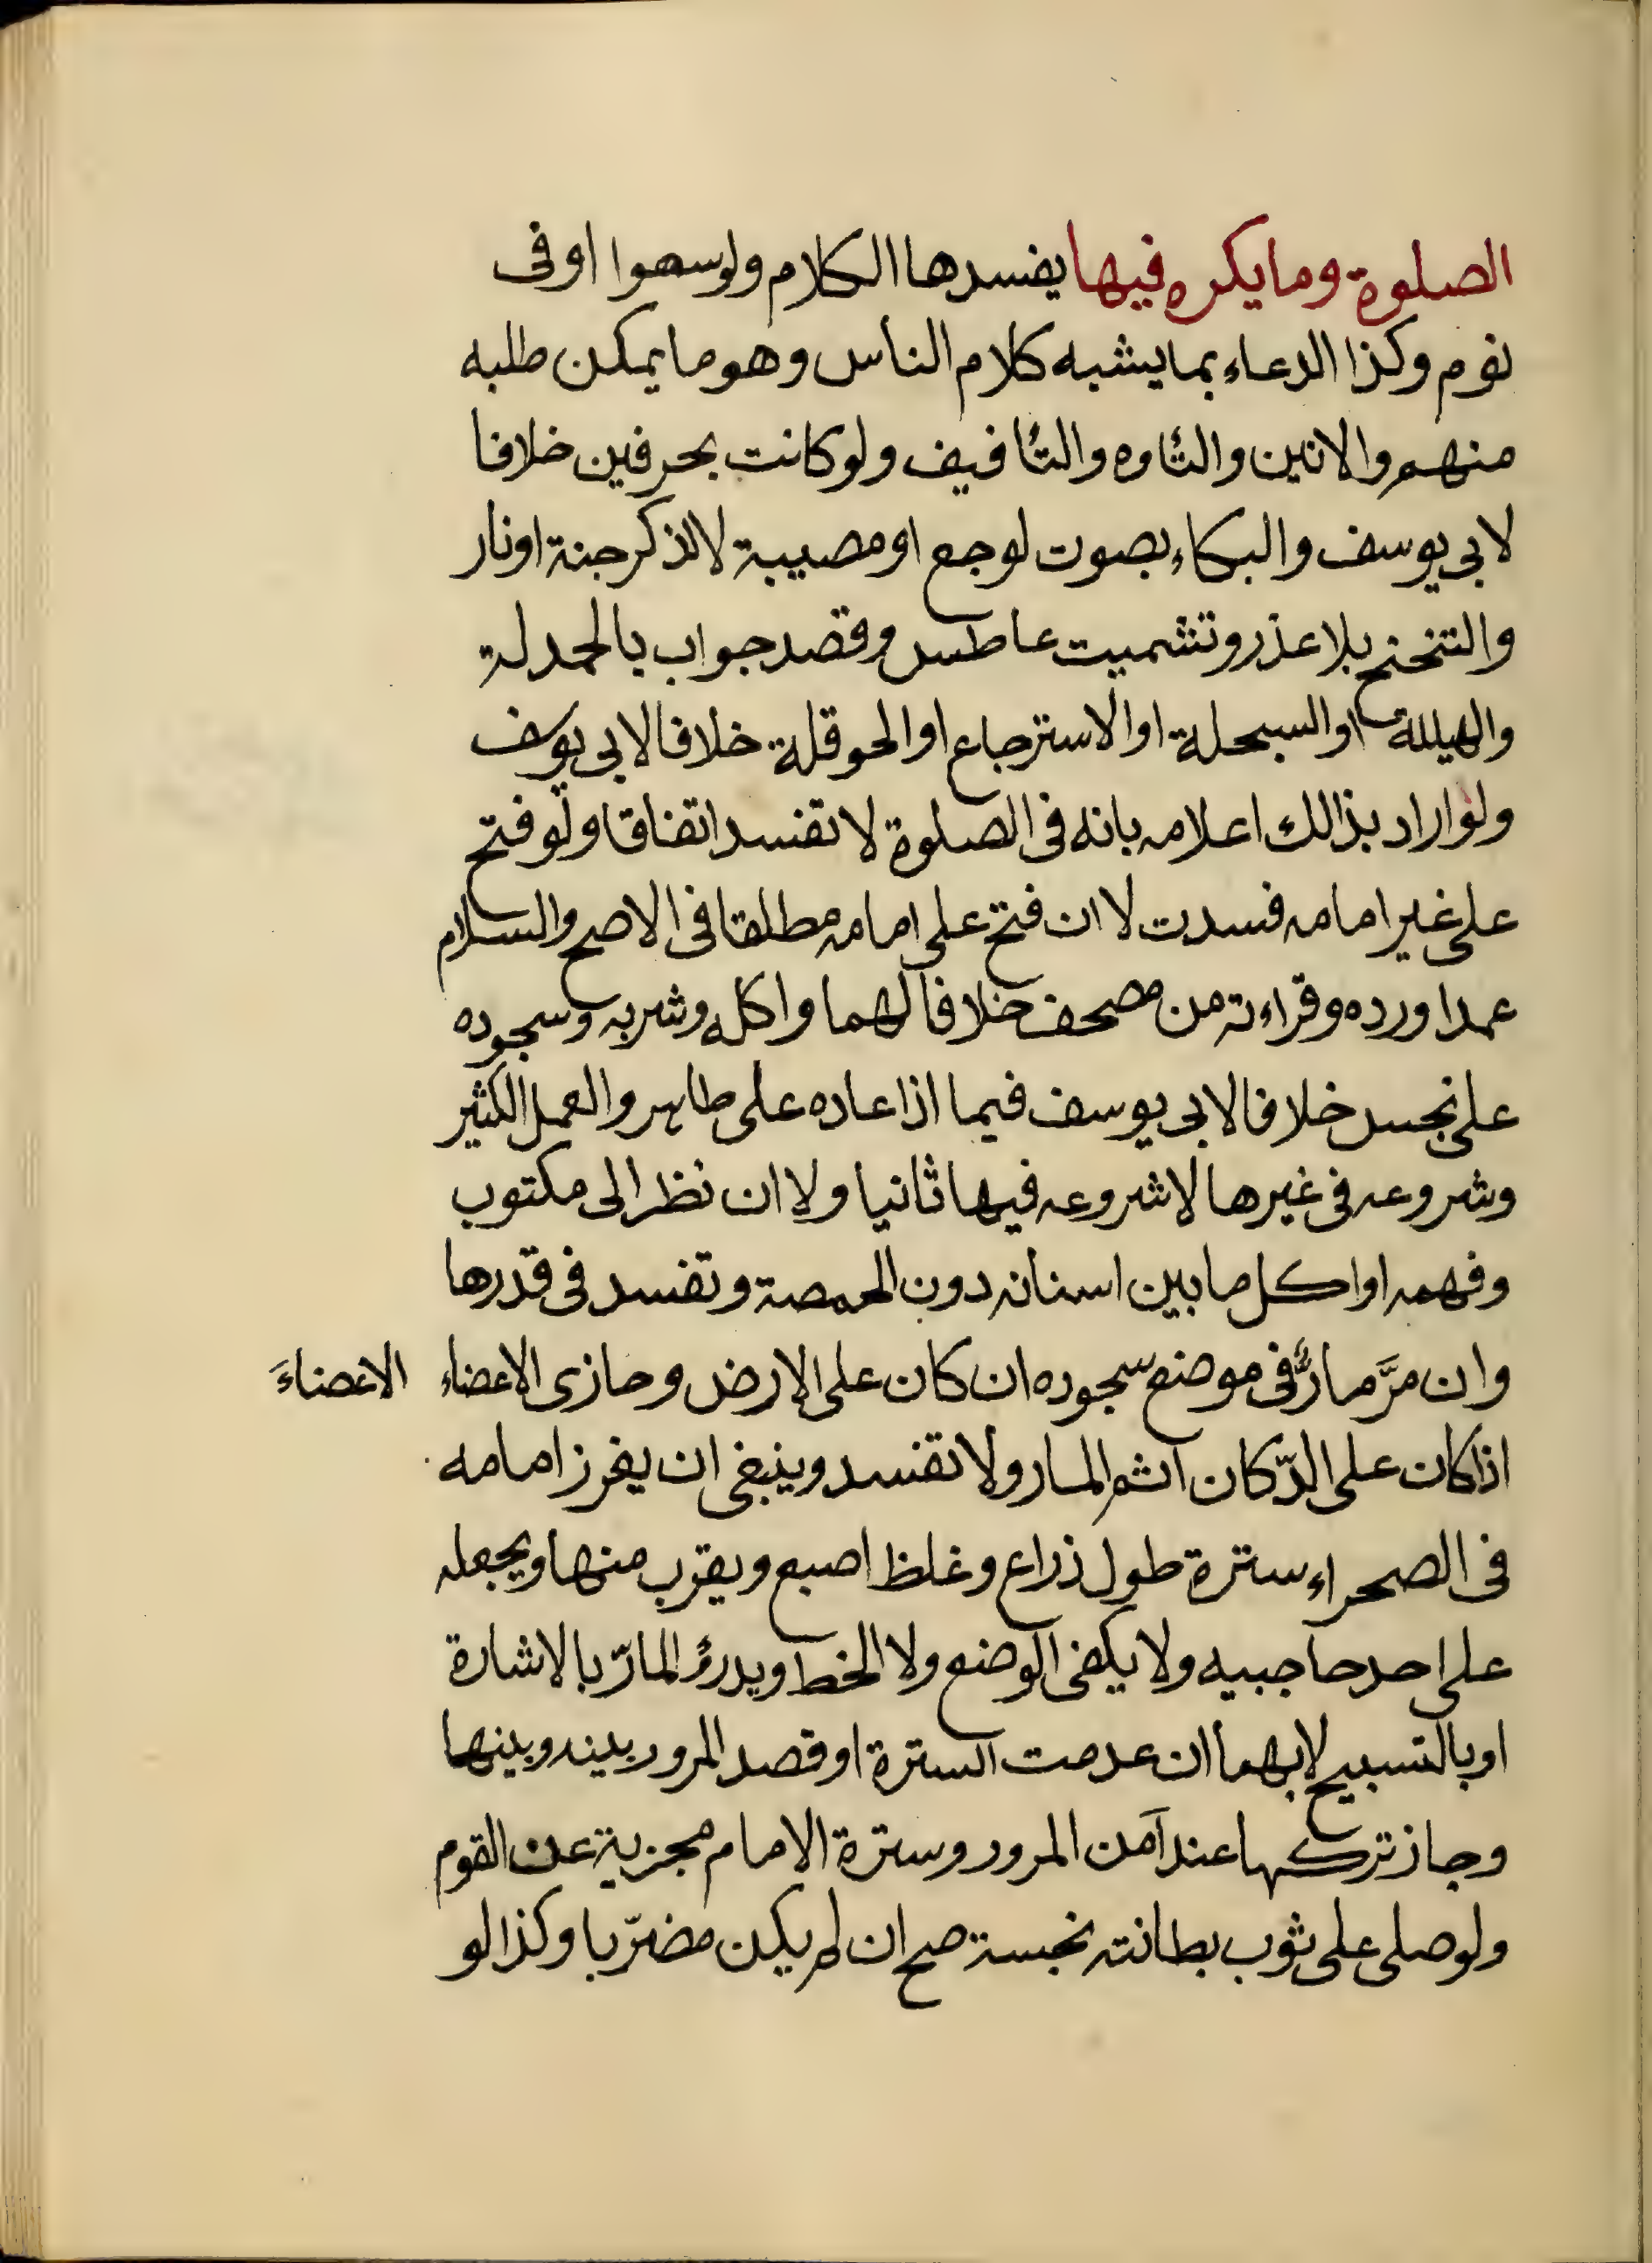 الصلوة وما يكره فيها يفسدها الكلام ولو سهوا او فى
نوم وكذا الدعاء بما يشبه كلام الناس وهو ما يمكن طلبه
منهم والانين والتأوه والتأفيف ولو كانت بحرفين خلافا
لابى يوسف والبكاء بصوت لوجع او مصيبة لا لذكر جنة او نار
والتنحنح بلا عذر وتشميت عاطس وقصد جواب بالحمدلة
والهيللة او السبحلة او الاسترجاع او الحوقلة خلافا لابى يوسف
ولو اراد بذالك اعلامه بانه فى الصلوة لا تفسد اتفاقا ولو فتح
على غير امامه فسدت لا ان فتح على امامه مطلقا فى الاصح والسلام
عمدا ورده وقراءته من مصحف خلافا لهما واكله وشربه وسجوده
على نجس خلافا لابى يوسف فيما اذا عاده على طاهر والعمل الكثير
وشروعه فى غيرها لا شروعه فيها ثانيا ولا ان نظر الى مكتوب
وفهمه او اكل ما بين اسنانه دون الحمصة وتفسد فى قدرها
وان مرَّ مارٌّ فى موضع سجوده ان كان على الارض وحازى الاعضاء الاعضاءَ
اذا كان على الدّكان اثم المار ولا تفسد وينبغى ان يغرز امامه
فى الصحراء سترة طول ذراع وغلظ اصبع ويقرب منها ويجعله
على احد حاجبيه ولا يكفى الوضع ولا الخط ويدرؤ المارّ بالاشارة
او بالتسبيح لا بهما ان عدمت السترة او قصد المرور بينه وبينها
وجاز تركها عند آمن المرور وسترة الامام مجزية عن القوم
ولو صلى على ثوب بطانته نجسة صح ان لم يكن مضرّبا وكذا لو